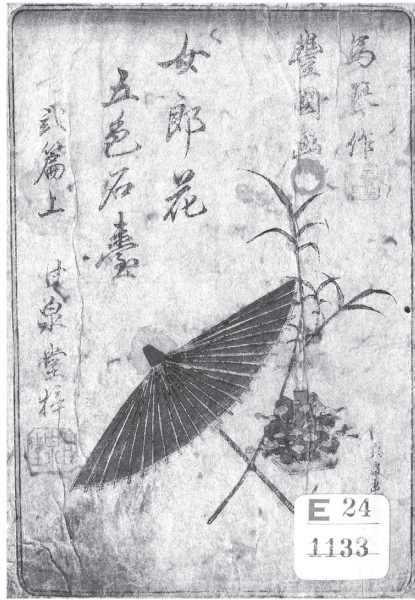 馬琴作
豐國画
女郎花
五色石臺
弐篇上
甘泉堂梓
E 24
1133